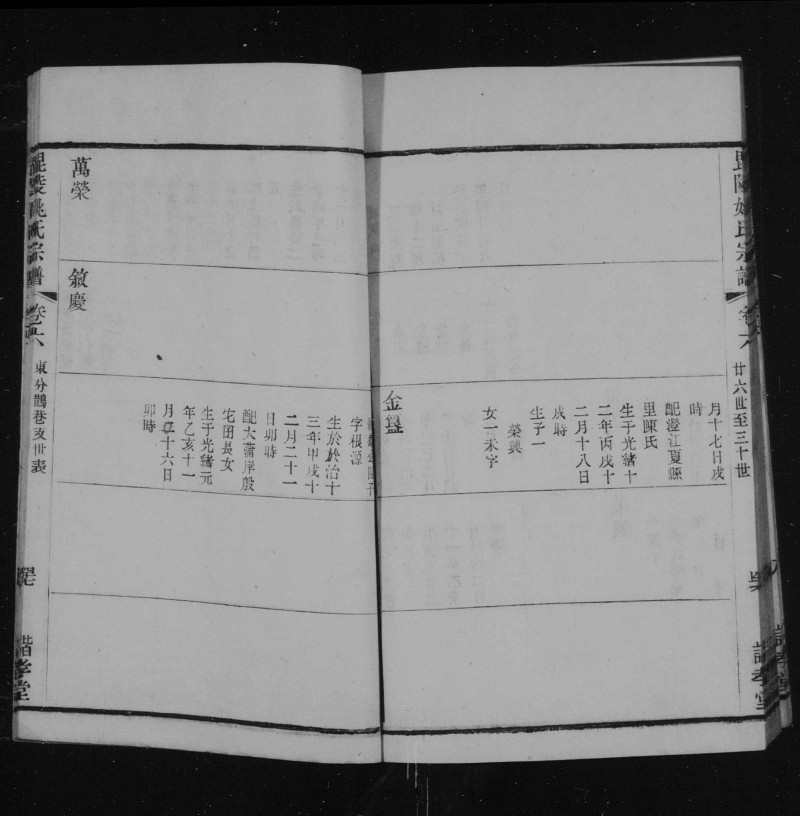 氏宗譜
卷六
廿六世至三十世
孝堂
月十七日戌
時
配澄江夏縣
里陳氏
生于光緒十
二年丙戌十
二月十八日
戌時
生子一
榮興
女一未字
金簋
字根源
生於於治十
三年甲戌十
二月二十一
日卯時
配大蒲岸殷
宅田長女
生于光緒元
年乙亥十一
月二十六日
卯時
敘慶
萬榮
毘陵姚氏宗譜
卷六
東分鵲巷支世表
諧孝堂